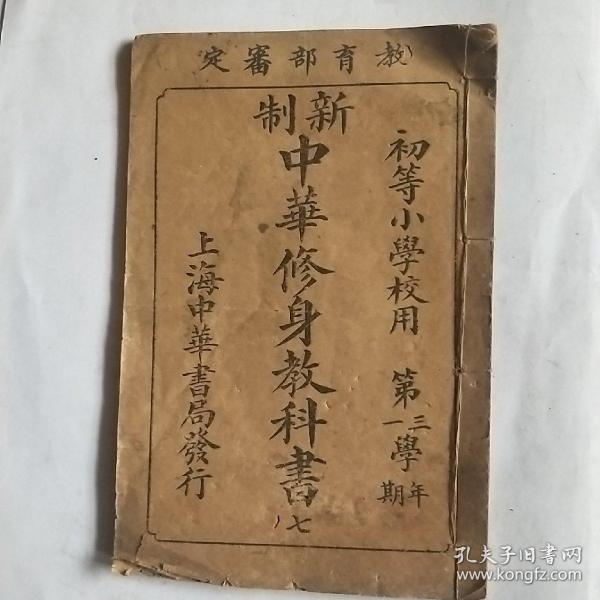 教育部審定
初等小學校用 第三學年
第一學期
新制
中華修身教科書 七
上海中華書局發行
孔夫子旧书网
www.kongfz.com